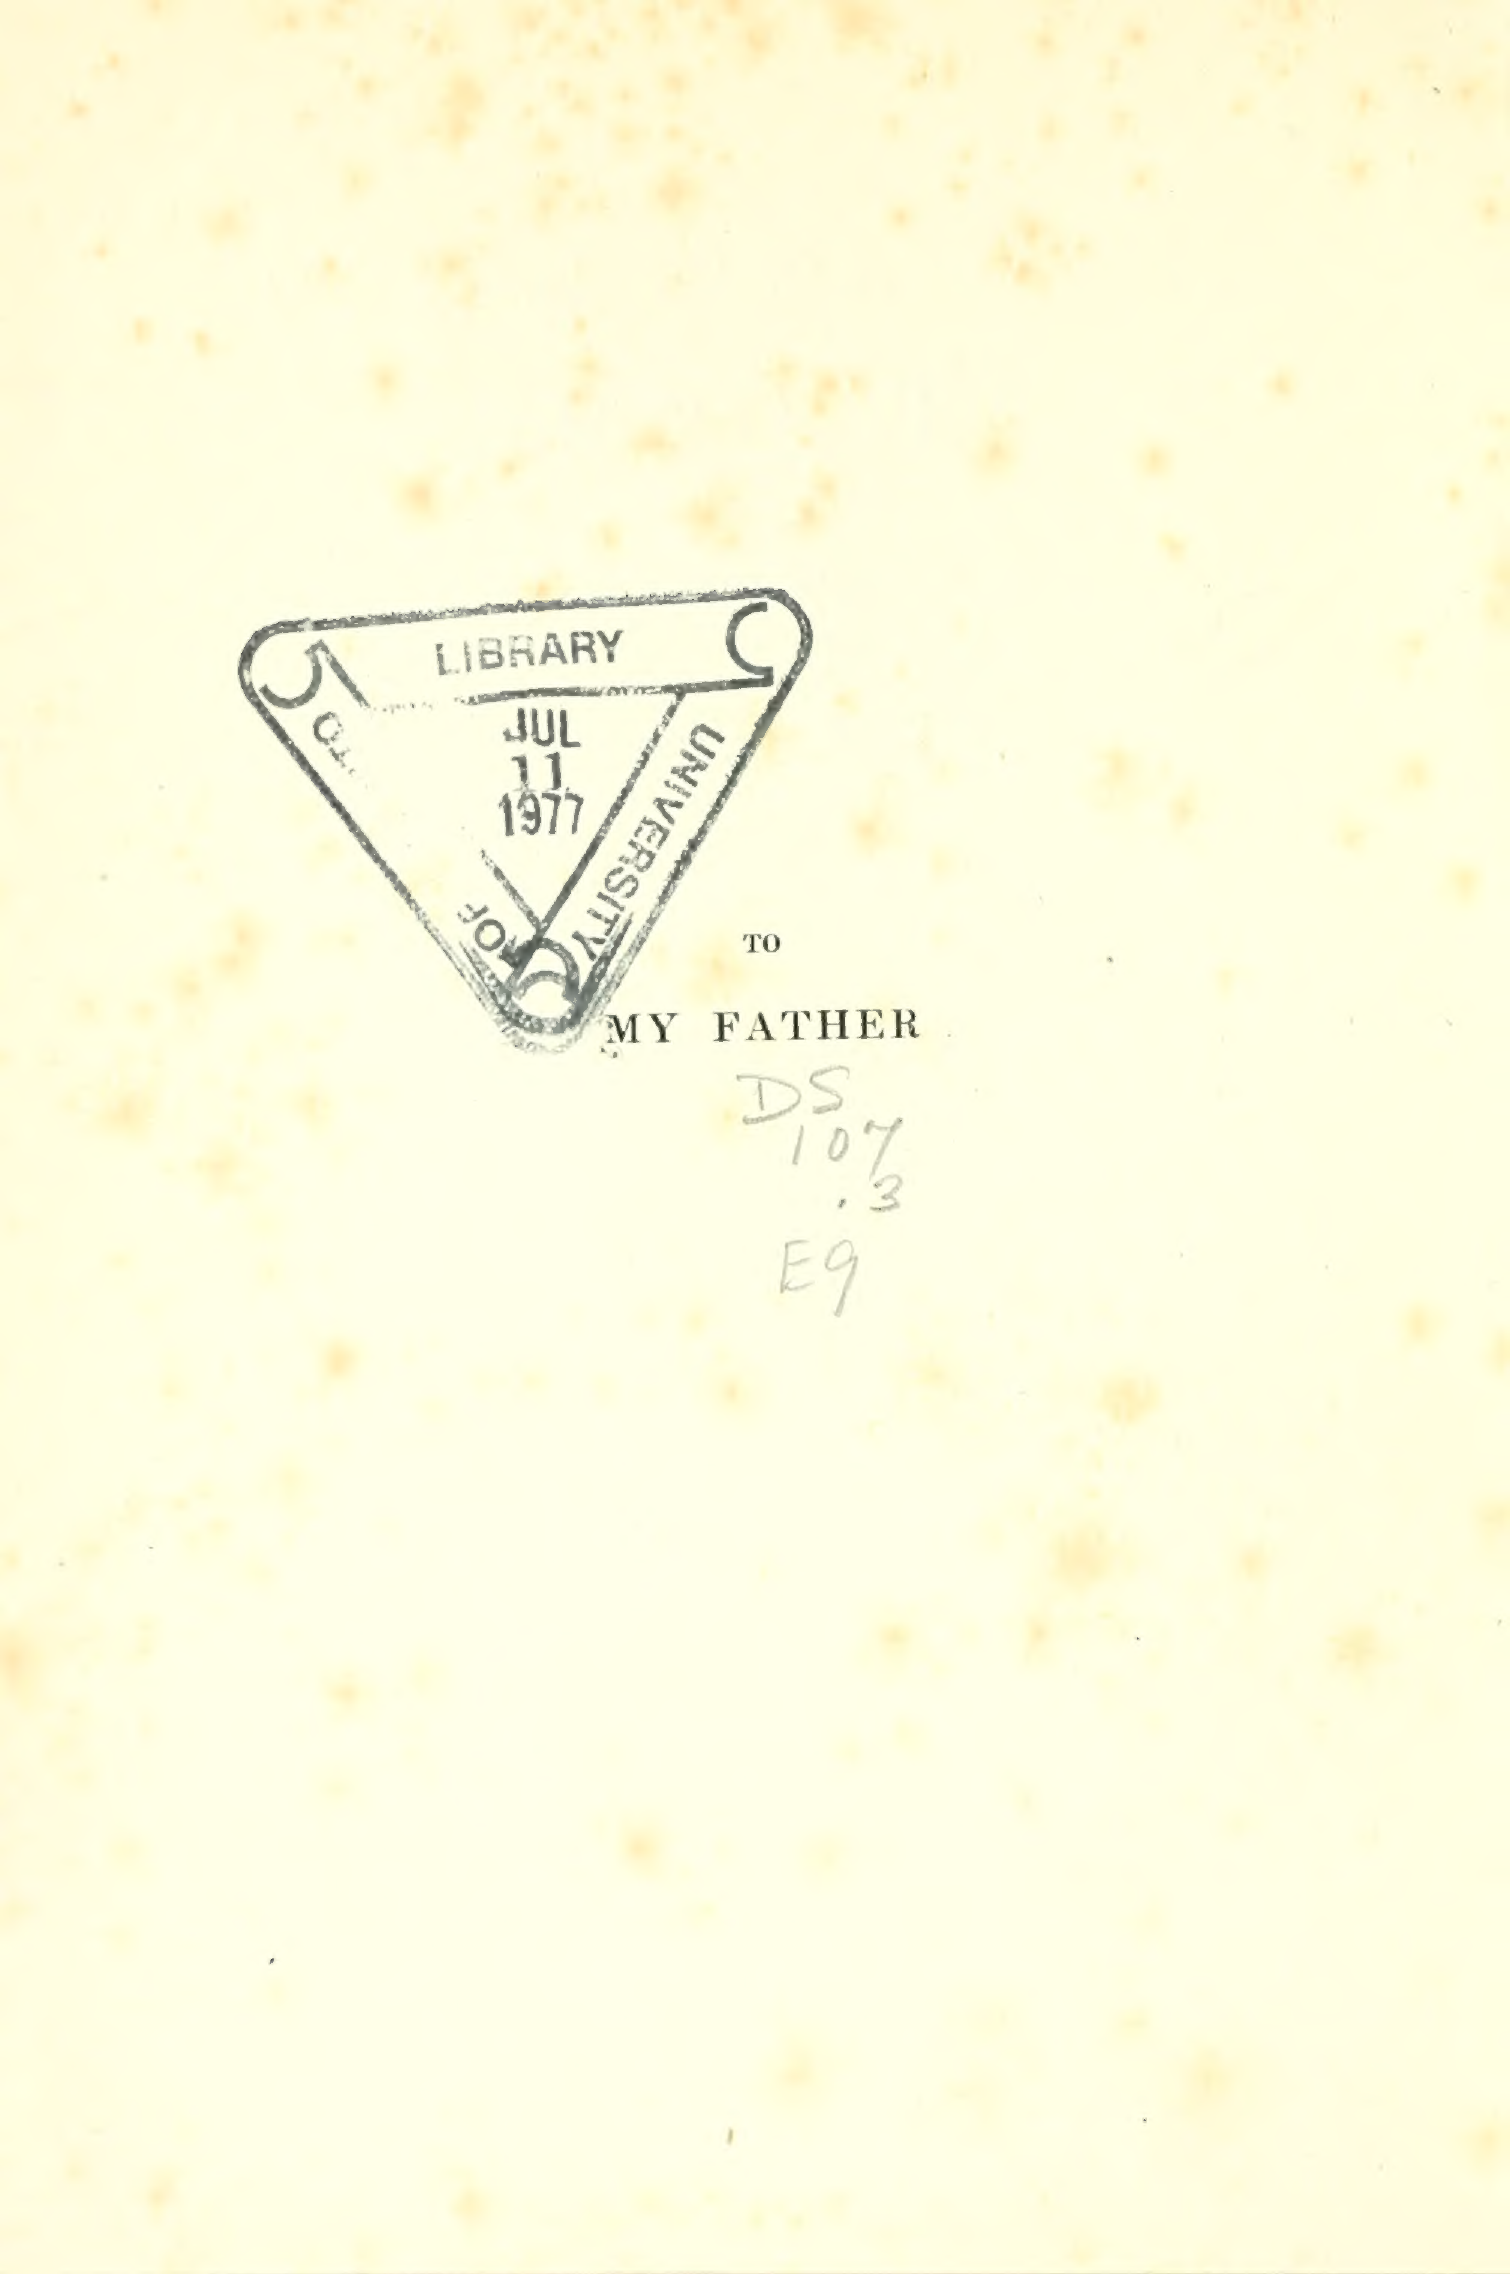 LIBRARY
JUL
11
1977
UNIVERSITY
OF
TO
MY FATHER
DS
107
.3
E9